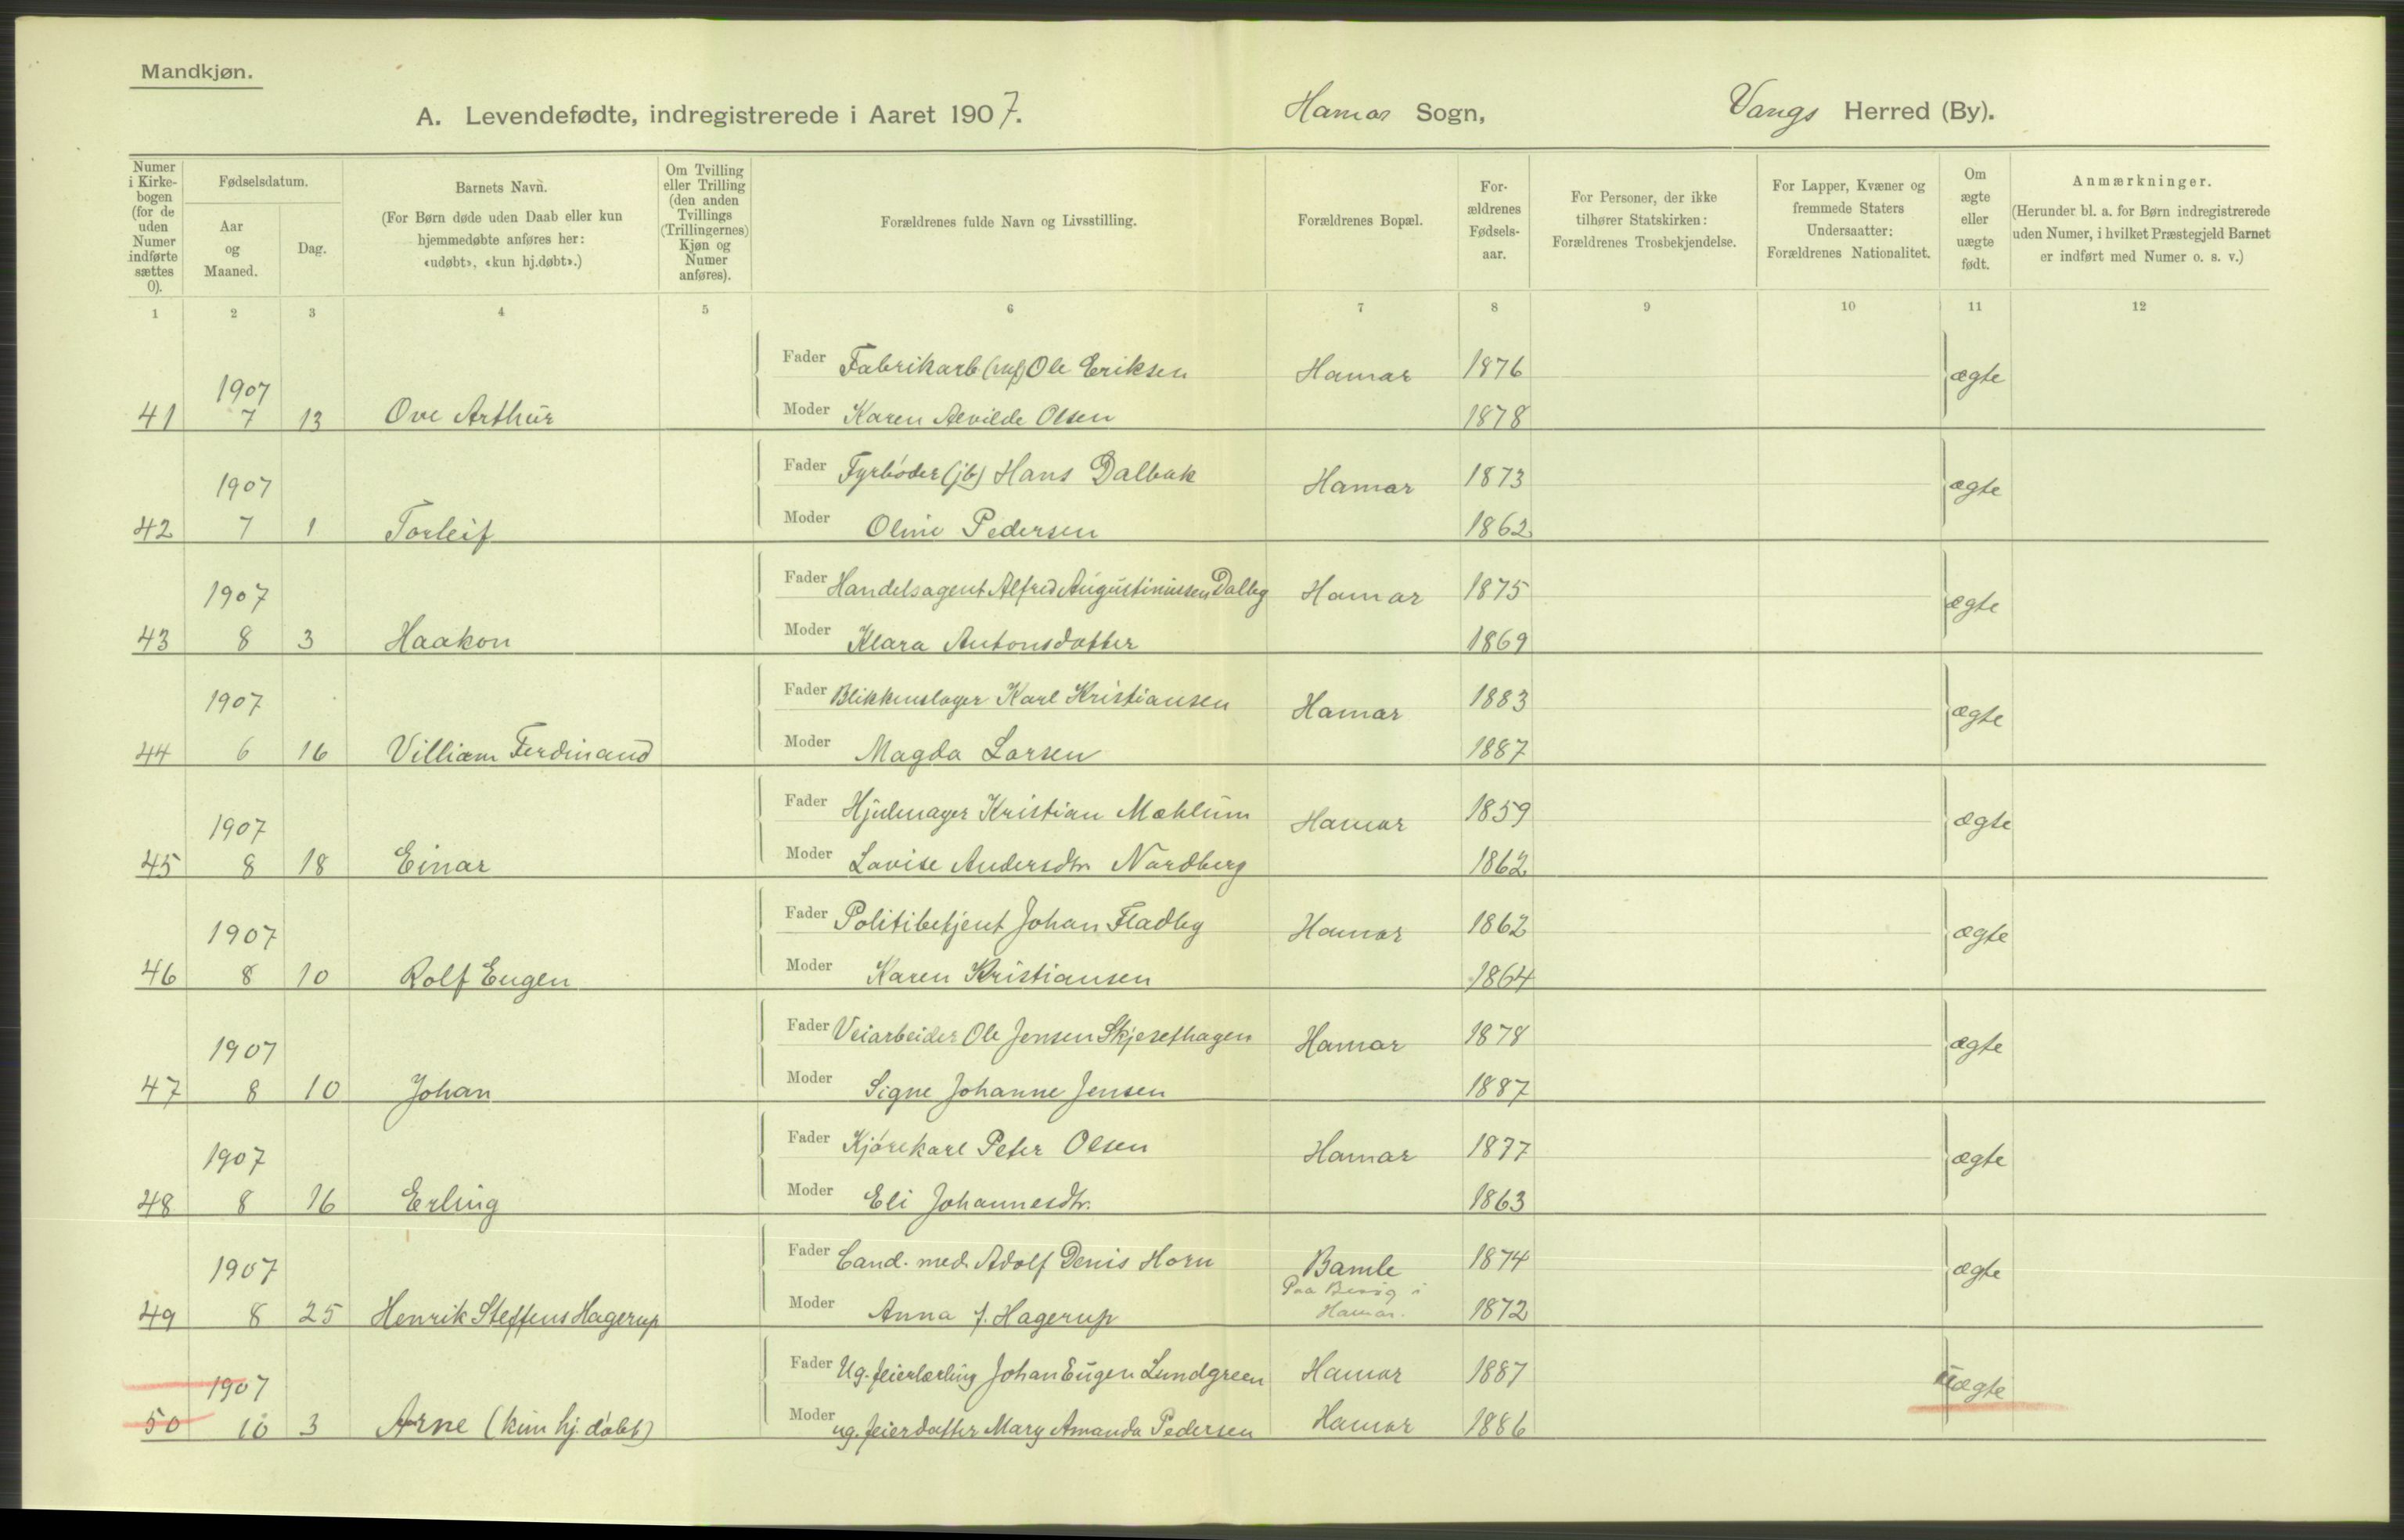 Mandkjøn.
A. Levendefødte, indregistrerede i Aaret 1907. Hamar Sogn, Vangs Herred (By).
Numer i Kirke-bogen (for de uden Numer indførte sættes 0).
Fødselsdatum.
Aar og Maaned.
Dag.
Barnets Navn.
(For Børn døde uden Daab eller kun hjemmedøbte anføres her: «udøbt», «kun hj.døbt».)
Om Tvilling eller Trilling (den anden Tvillings (Trillingernes) Kjøn og Numer anføres).
Forældrenes fulde Navn og Livsstilling.
Forældrenes Bopæl.
For-ældrenes Fødsels-aar.
For Personer, der ikke tilhører Statskirken: Forældrenes Trosbekjendelse.
For Lapper, Kvæner og fremmede Staters Undersaatter: Forældrenes Nationalitet.
Om ægte eller uægte født.
Anmærkninger.
(Herunder bl. a. for Børn indregistrerede uden Numer, i hvilket Præstegjeld Barnet er indført med Numer o. s. v.)
1 2 3 4 5 6 7 8 9 10 11 12
1907 Fader Fabrikarb Ole Eriksen Hamar 1876 ægte
41 7 13 Ove Arthur Moder Karen Alvilde Olsen 1878
1907 Fader Fyrbøder (jb) Hans Dalbak Hamar 1873 ægte
42 7 1 Torleif Moder Oline Pedersen 1862
1907 Fader Handelsagent Alfred Augustiniussen Dalby Hamar 1875 ægte
43 8 3 Haakon Moder Klara Antonsdatter 1869
1907 Fader Blikkenslager Karl Kristiansen Hamar 1883 ægte
44 6 16 Villiam Ferdinand Moder Magda Larsen 1887
1907 Fader Hjulmager Kristian Mæhlum Hamar 1859 ægte
45 8 18 Einar Moder Lovise Andersdtr. Nordberg 1862
1907 Fader Politibetjent Johan Fladby Hamar 1862 ægte
46 8 10 Rolf Eugen Moder Karen Kristiansen 1864
1907 Fader Veiarbeider Ole Jensen Skjesethagen Hamar 1878 ægte
47 8 10 Johan Moder Signe Johanne Jensen 1887
1907 Fader Kjørekarl Peter Olsen Hamar 1877 ægte
48 8 16 Erling Moder Eli Johannesdtr. 1863
1907 Fader Cand. med. Adolf Denis Horn Bamle 1874 ægte
Paa Besøg i
49 8 25 Henrik Steffens Hagerup Moder Anna f. Hagerup Hamar. 1872
1907 Fader Ug. feierlærling Johan Eugen Lundgreen Hamar 1887 uægte
50 10 3 Arne (kun hj. døbt) Moder ug. feierdatter Mary Amanda Pedersen Hamar 1886